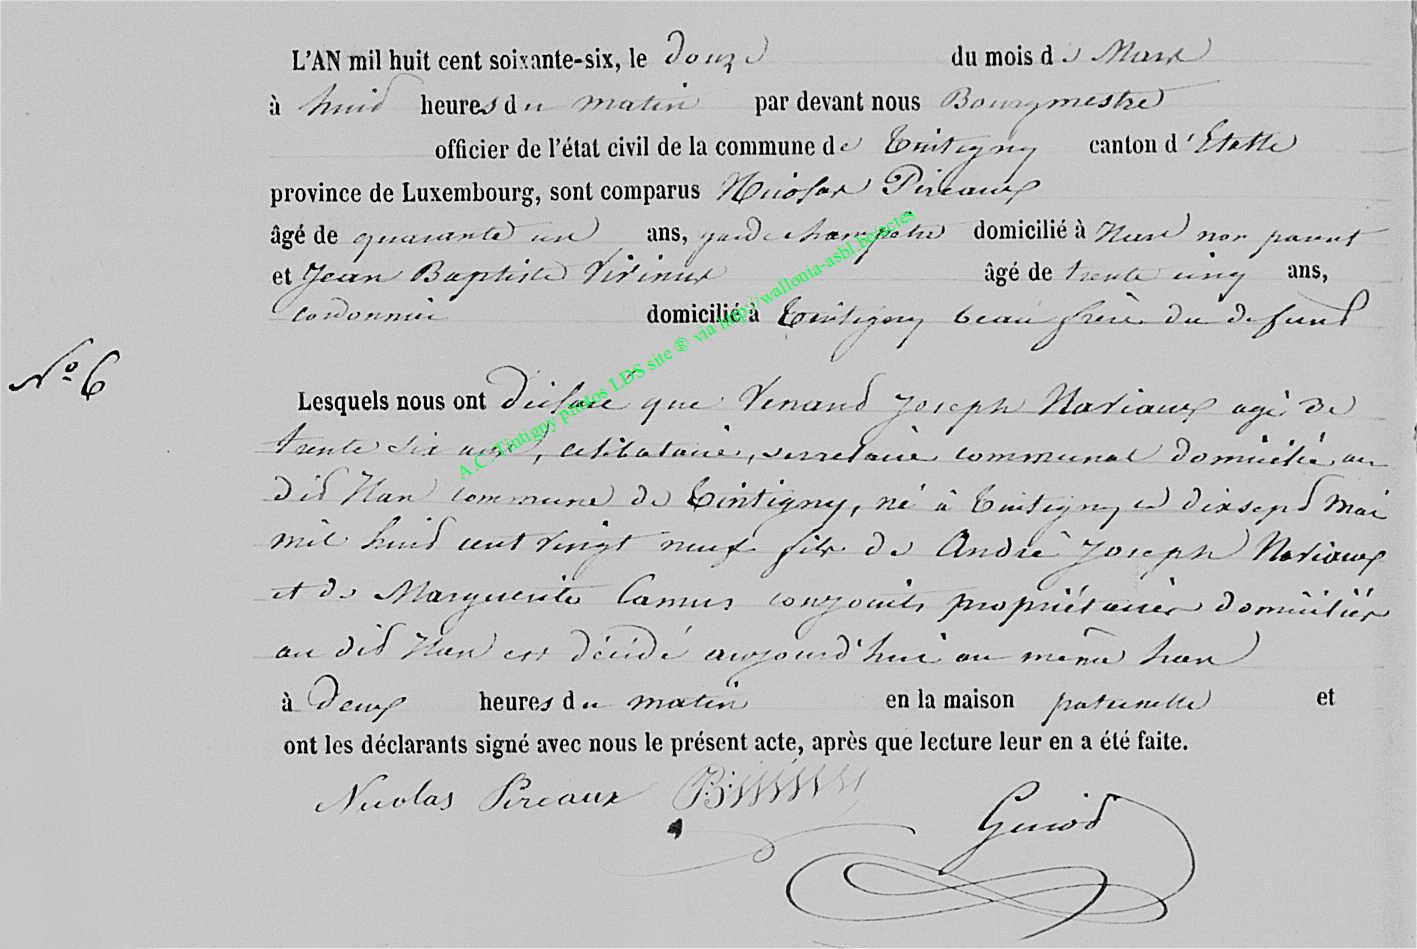 L'AN mil huit cent soixante-six, le douze du mois de Mars
à huid heures du matin par devant nous Bourgmestre
officier de l'état civil de la commune de Tintigny canton d'Etalle
province de Luxembourg, sont comparus Nicolas Pireaux
âgé de quarante un ans, garde champêtre domicilié à Han non parent
et Jean Baptiste âgé de trente cinq ans,
cordonnier domicilié à Tintigny beau frère du defund
N° 6
Lesquels nous ont déclaré que Venand Joseph Naviaux agé de
trente six ans, celibataire, secretaire communal domicilié au
did Han commune de Tintigny, né à Tintigny le dixsepd mai
mil huid cent vingt neuf fils de André Joseph Naviaux
et de Marguerite Camus conjoints propriétaires domiciliés
au did Han est décédé aujourd'hui au même han
à deux heures du matin en la maison paternelle et
ont les déclarants signé avec nous le présent acte, après que lecture leur en a été faite.
Nicolas Pireaux
A.C. Tintigny photos LDS site ® via http://wallonia-asbl.be/actes